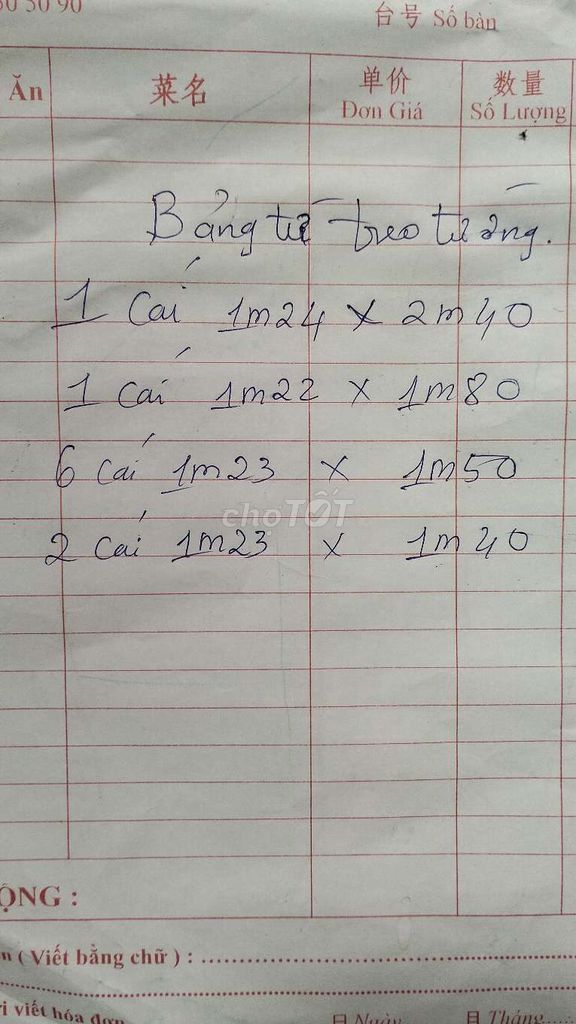 50 50 90
台号 Số bàn
Ăn 菜名 单价 数量
Đơn Giá Số Lượng
Bảng từ treo tường.
1 cái 1m24 x 2m40
1 cái 1m22 x 1m80
6 cái 1m23 x 1m50
chợTỐT
2 cái 1m23 x 1m40
ỘNG :
n ( Viết bằng chữ ) :
i viết hóa đơn 日 Ngày 月 Tháng